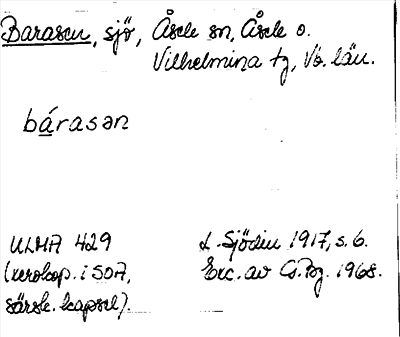 Barasen, sjö, Åsele sn, Åsele o.
Vilhelmina tg, Vb. län.
bárasən
ULMA 429
(xerokop. i SOA,
särsk. kapsel).
L. Sjödin 1917, s. 6.
Exc. av G.Pg. 1968.